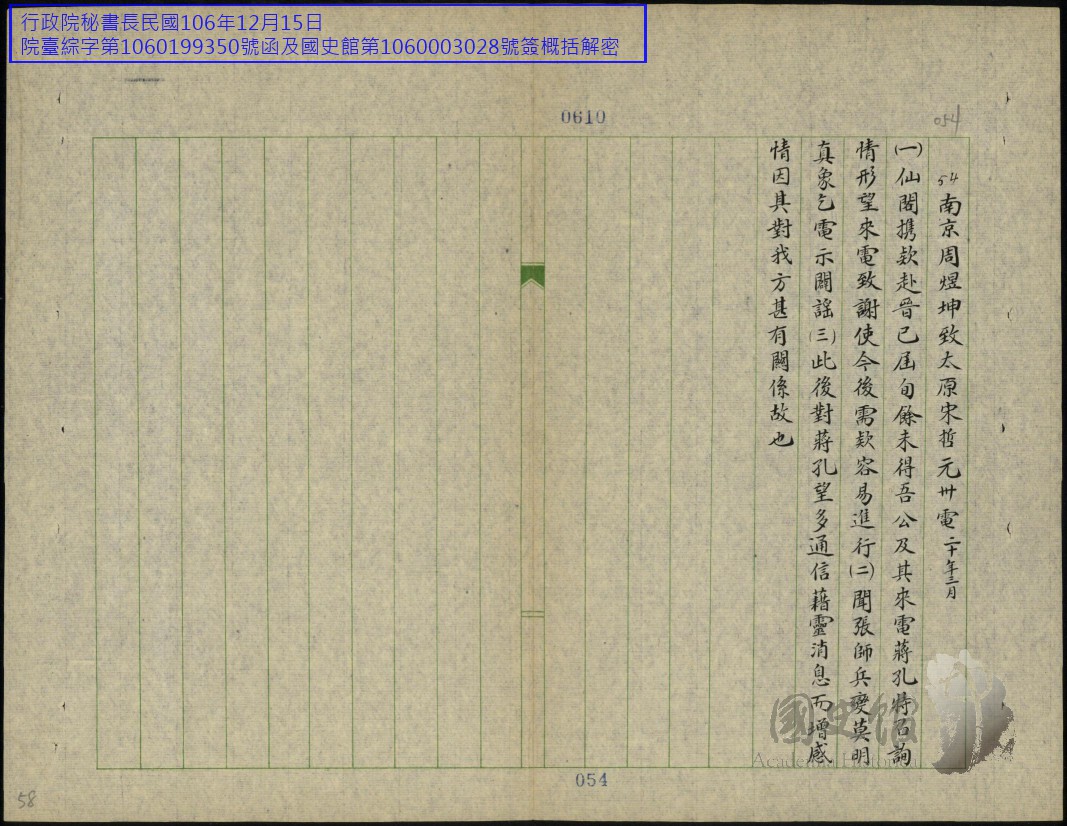 行政院秘書長民國106年12月15日
院臺綜字第1060199350號函及國史館第1060003028號簽概括解密
0610
054
54南京周煜坤致太原宋哲元卅電二十年三月
(一)仙閣携欵赴晉已屆旬餘未得吾公及其來電蔣孔特召詢
情形望來電致謝使今後需欵容易進行(二)聞張師兵變莫明
真象乞電示闢謠(三)此後對蔣孔望多通信藉靈消息而增感
情因其對我方甚有關係故也
國史館
Academia Historica
054
58